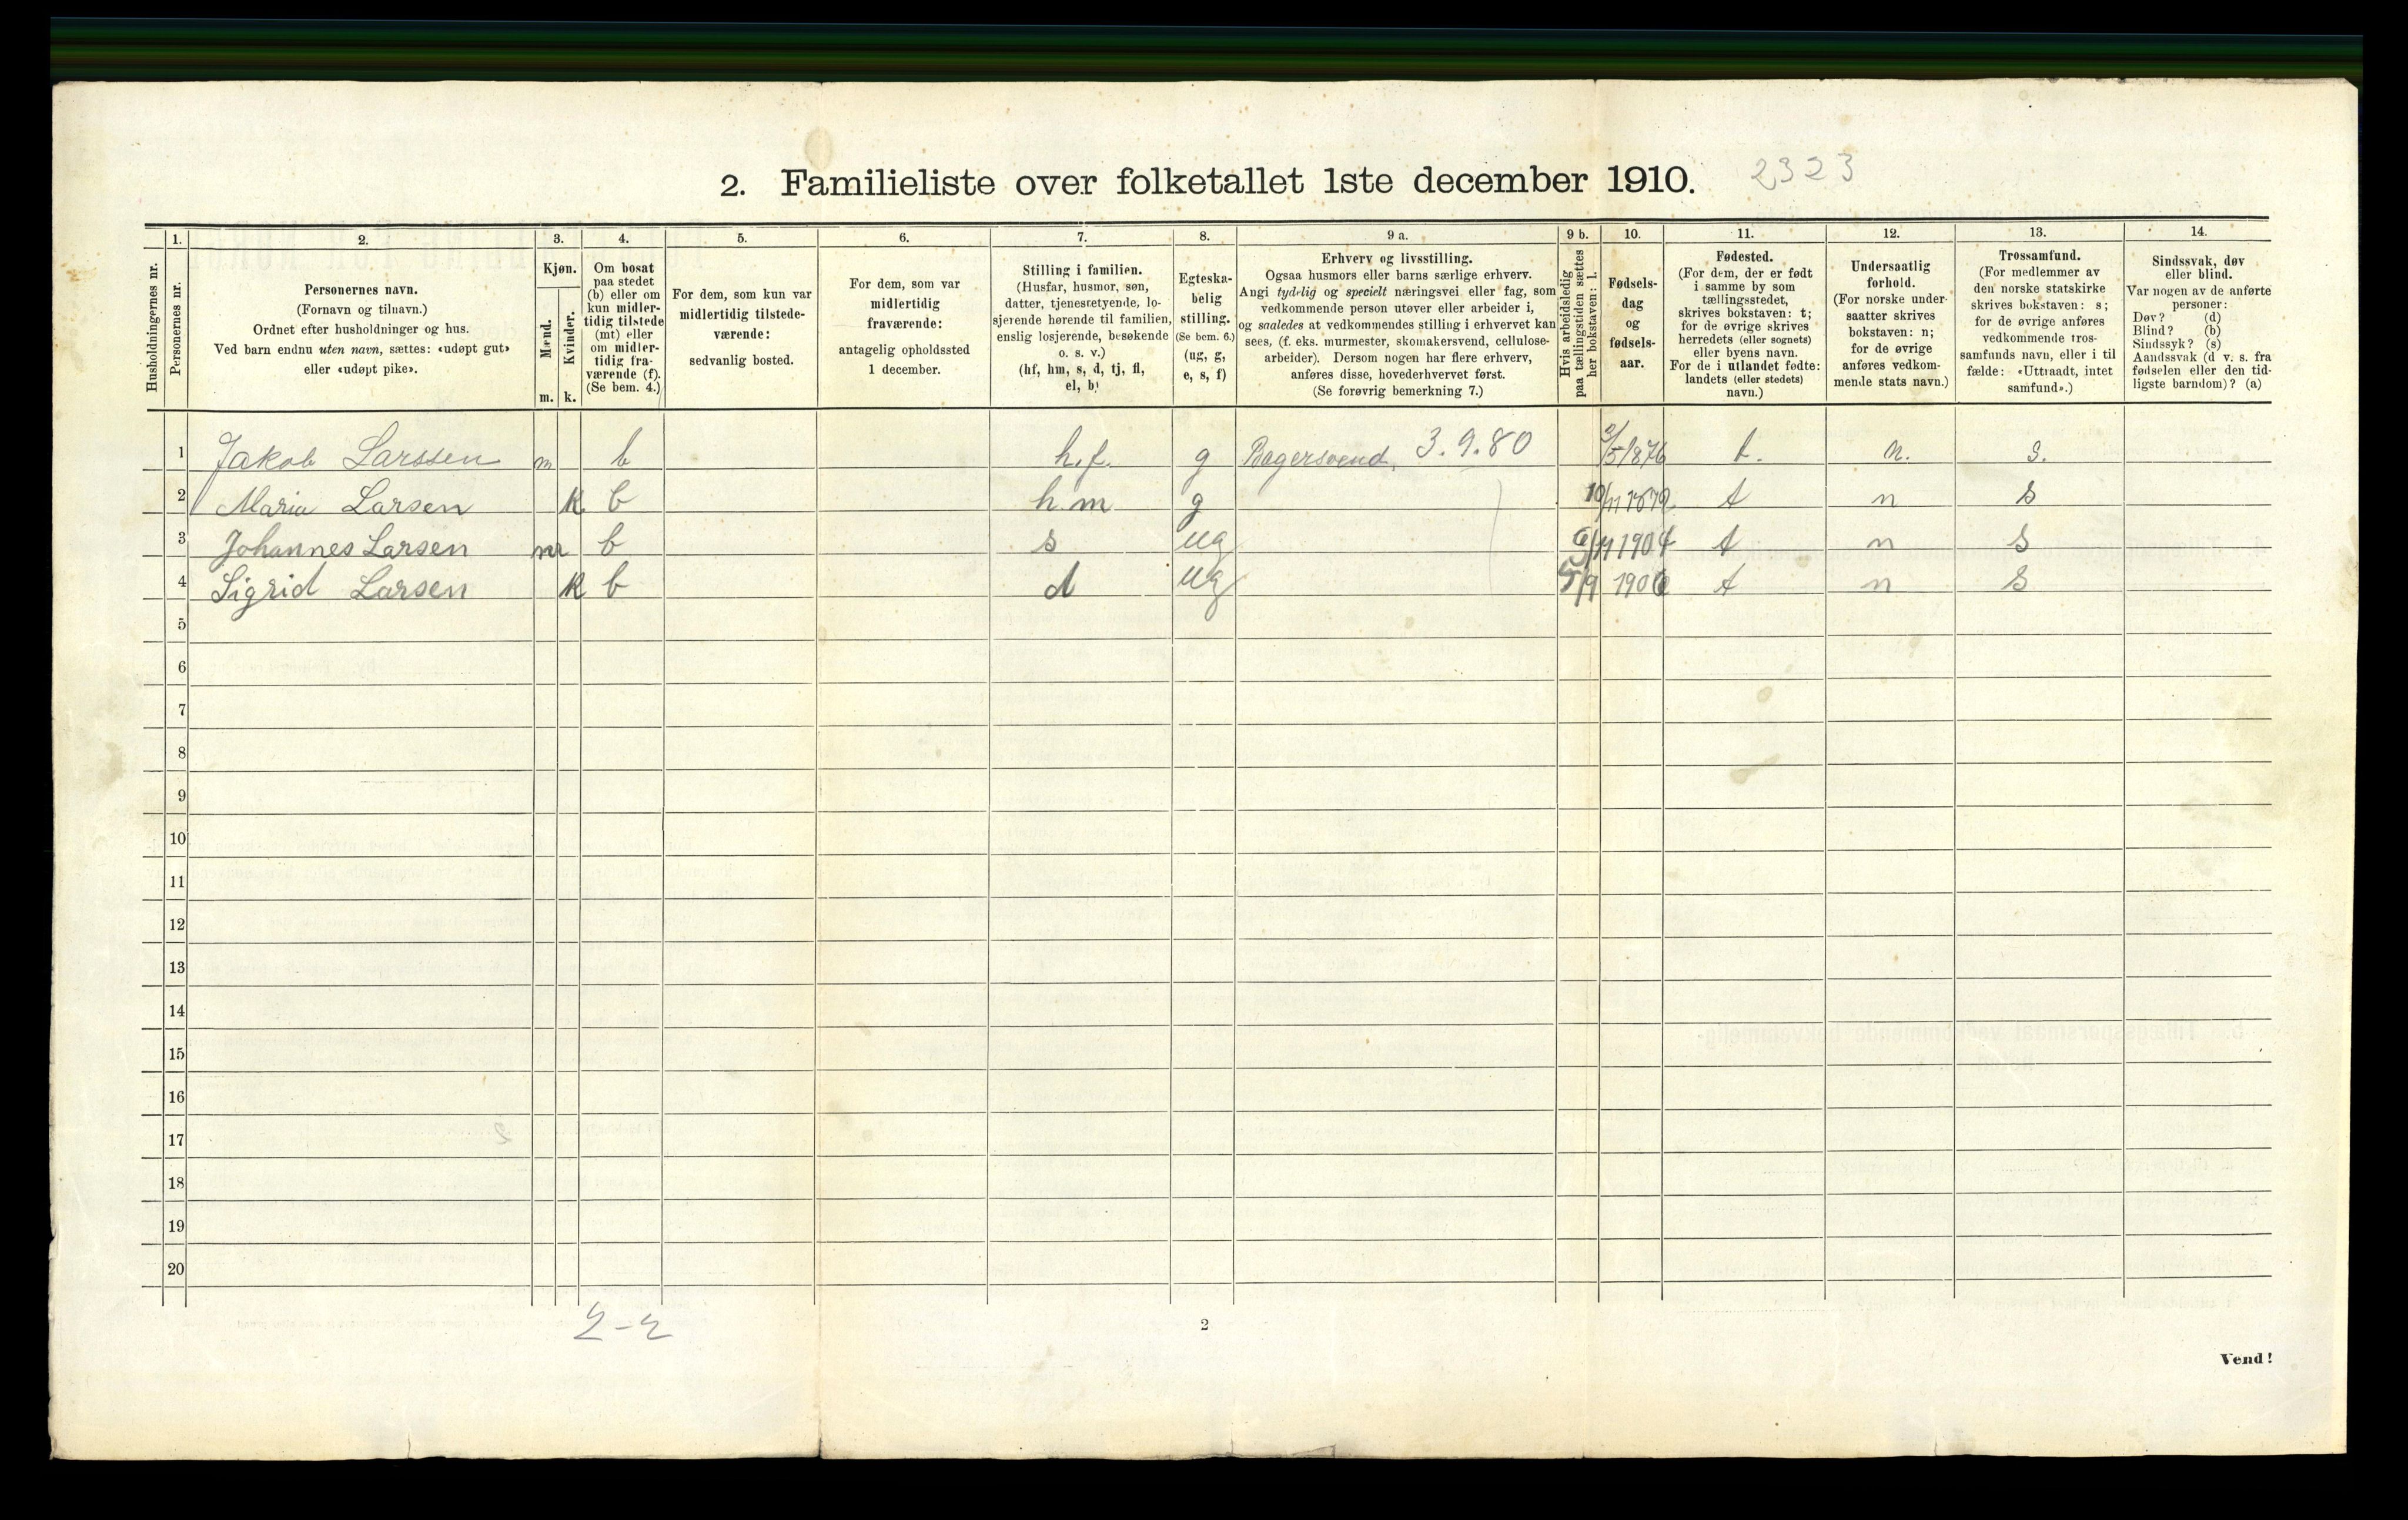 2. Familieliste over folketallet 1ste december 1910. 2323
Husholdningernes nr.
1.
Personernes nr.
2.
Personernes navn.
(Fornavn og tilnavn.)
Ordnet efter husholdninger og hus.
Ved barn endnu uten navn, sættes: «udøpt gut»
eller «udøpt pike».
3.
Kjøn.
Mænd.
Kvinder.
m. k.
4.
Om bosat
paa stedet
(b) eller om
kun midler-
tidig tilstede
(mt) eller
om midler-
tidig fra-
værende (f).
(Se bem. 4.)
5.
For dem, som kun var
midlertidig tilstede-
værende:
sedvanlig bosted.
6.
For dem, som var
midlertidig
fraværende:
antagelig opholdssted
1 december.
7.
Stilling i familien.
(Husfar, husmor, søn,
datter, tjenestetyende, lo-
sjerende hørende til familien,
enslig losjerende, besøkende
o. s. v.)
(hf, hm, s, d, tj, fl,
el, b)
8.
Egteska-
belig
stilling.
(Se bem. 6.)
(ug, g,
e, s, f)
9 a.
Erhverv og livsstilling.
Ogsaa husmors eller barns særlige erhverv.
Angi tydelig og specielt næringsvei eller fag, som
vedkommende person utøver eller arbeider i,
og saaledes at vedkommendes stilling i erhvervet kan
sees, (f. eks. murmester, skomakersvend, cellulose-
arbeider). Dersom nogen har flere erhverv,
anføres disse, hovederhvervet først.
(Se forøvrig bemerkning 7.)
9 b.
Hvis arbeidsledig
paa tællingstiden sættes
her bokstaven: l.
10.
Fødsels-
dag
og
fødsels-
aar.
11.
Fødested.
(For dem, der er født
i samme by som
tællingsstedet,
skrives bokstaven: t;
for de øvrige skrives
herredets (eller sognets)
eller byens navn.
For de i utlandet fødte:
landets (eller stedets)
navn.)
12.
Undersaatlig
forhold.
(For norske under-
saatter skrives
bokstaven: n;
for de øvrige
anføres vedkom-
mende stats navn.)
13.
Trossamfund.
(For medlemmer av
den norske statskirke
skrives bokstaven: s;
for de øvrige anføres
vedkommende tros-
samfunds navn, eller i til
fælde: «Uttraadt, intet
samfund».)
14.
Sindssvak, døv
eller blind.
Var nogen av de anførte
personer:
Døv? (d)
Blind? (b)
Sindssyk? (s)
Aandssvak (d v. s. fra
fødselen eller den tid-
ligste barndom)? (a)
1 Jakob Larssen m b h.f. g Bagersvend. 3.9.80 /5 1876 t. n. s.
2 Maria Larsen k b h.m g 10/11 1879 t n s
3 Johannes Larsen m b s ug 6/11 1904 t n s
4 Sigrid Larsen k b d ug 5/9 1906 t n s
5
6
7
8
9
10
11
12
13
14
15
16
17
18
19
20
2-2
2
Vend!